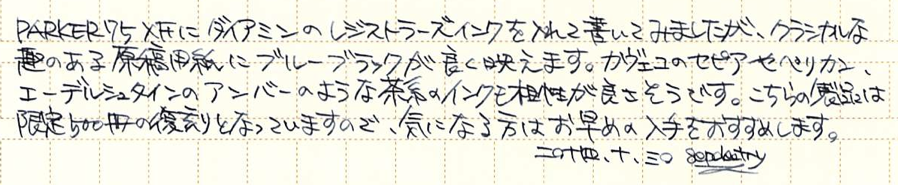 PARKER75 XFにダイアミンのレジストラーズインクを入れて書いてみましたが、クラシカルな
趣のある原稿用紙にブルーブラックが良く映えます。カヴェコのセピアやペリカン、
エーデルシュタインのアンバーのような茶系のインクも相性が良さそうです。こちらの製品は
限定500冊の復刻となっていますので、気になる方はお早めの入手をおすすめします。
二〇十四、十、三〇